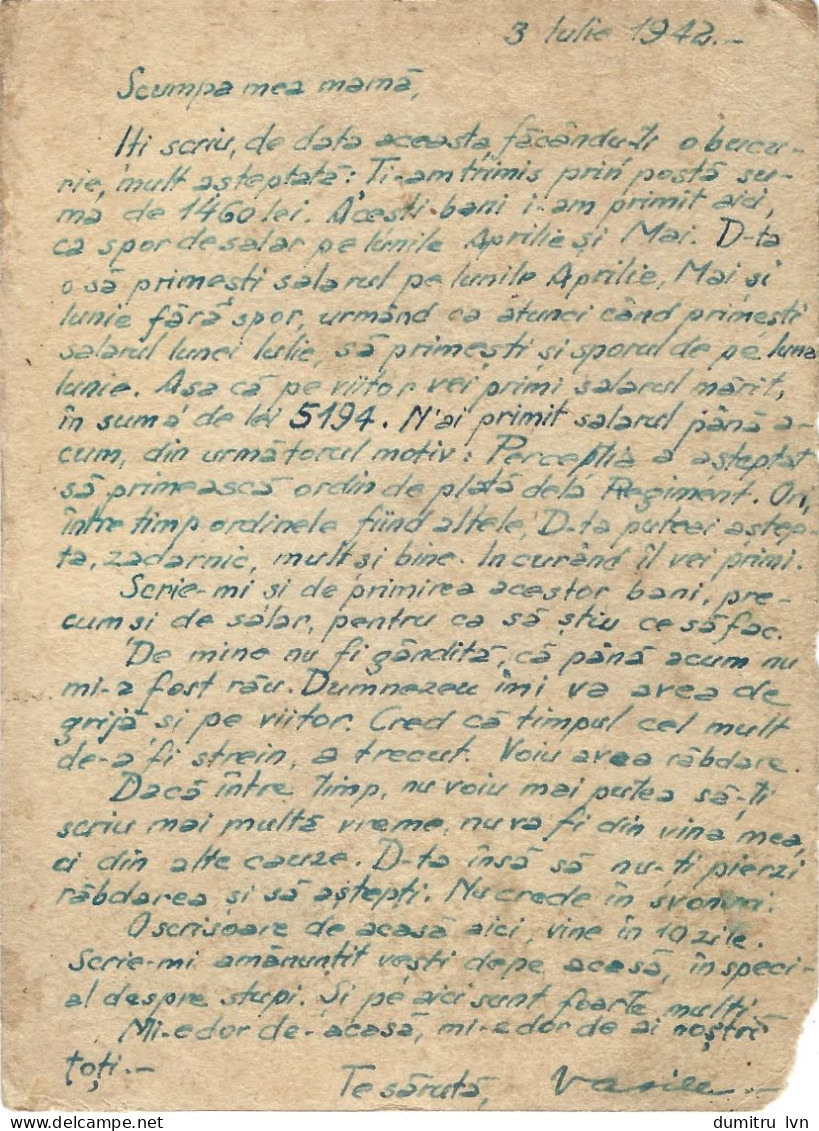 3 Iulie 1942.-
Scumpa mea mamă,
Iti scriu, de data aceasta făcându-ți o bucu-
rie, mult asteptată: Ți-am trimis prin postă su-
ma de 1460 lei. Acesti bani i-am primit aici,
ca spor de salar pe lunile Aprilie și Mai. D-ta
o să primesti salarul pe lunile Aprilie, Mai și
Iunie fără spor, urmând ca atunci când primești
salarul lunei Iulie, să primești și sporul de pe luna
Iunie. Asa că pe viitor vei primi salarul mărit,
în sumă de lei 5194. N'ai primit salarul până a-
cum, din următorul motiv: Percepția a asteptat
să primească ordin de plată dela Regiment. Ori,
între timp ordinele fiind altele, D-ta puteai astep-
ta, zadarnic, mult si bine. In curând îl vei primi.
Scrie-mi si de primirea acestor bani, pre-
cum si de salar, pentru ca să știu ce să fac.
De mine nu fi gândită, că până acum nu
mi-a fost rău. Dumnezeu îmi va avea de
grijă si pe viitor. Cred că timpul cel mult
de-a fi strein, a trecut. Voiu avea răbdare.
Dacă între timp, nu voiu mai putea să-ți
scriu mai multă vreme, nu va fi din vina mea,
ci din alte cauze. D-ta însă să nu-ti pierzi
răbdarea si să aștepți. Nu crede în svonuri.
O scrisoare de acasă aici, vine în 10 zile.
Scrie-mi amănunțit vesti depe acasă, în speci-
al despre stupi. Și pe aici sunt foarte multi.
Mi-e dor de-acasă, mi-e dor de ai noștri
toți.-
Te sărută, Vasile.-
dumitru_lvn